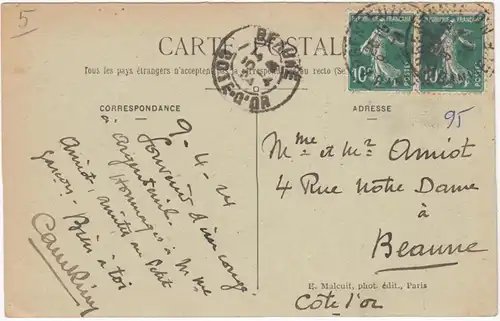 5
CARTE POSTALE
Tous les pays étrangers n'acceptent pas la correspondance au recto (Se
BEAUNE
COTE-D'OR
RÉPUBLIQUE FRANÇAISE
10c
POSTES
10c
POSTES
CORRESPONDANCE
ADRESSE
95
9-4-24
Souvenir d'un
à Argenteuil.
Hommages à Mme
Amiot, amitiés au Petit
garçon - Bien à toi
Mme et Mr Amiot
4 Rue Notre Dame
à
Beaune
E. Malcuit, phot. édit., Paris
Côte d'or